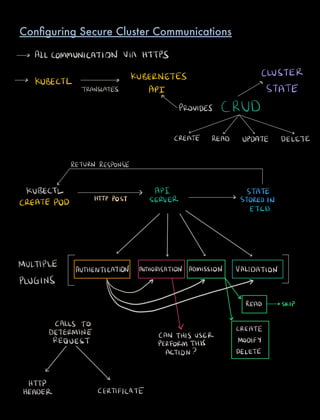 Configuring Secure Cluster Communications
→ ALL COMMUNICATION VIA HTTPS
→ KUBECTL
TRANSLATES
KUBERNETES
API
CLUSTER
STATE
PROVIDES CRUD
CREATE READ UPDATE DELETE
RETURN RESPONSE
KUBECTL
CREATE POD
HTTP POST
API
SERVER
STATE
STORED IN
ETCD
MULTIPLE
PLUGINS
AUTHENTICATION AUTHORISATION ADMISSION VALIDATION
READ → SKIP
CREATE
MODIFY
DELETE
CALLS TO
DETERMINE
REQUEST
CAN THIS USER
PERFORM THIS
ACTION?
HTTP
HEADER
CERTIFICATE